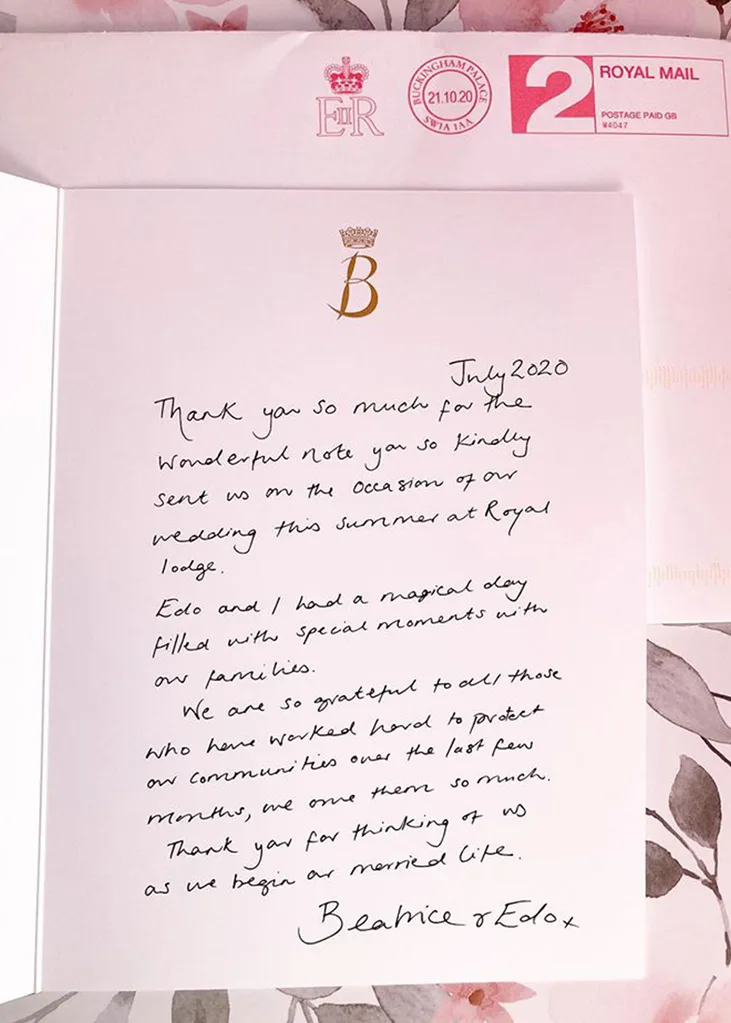 EIIR
BUCKINGHAM PALACE
21.10.20
SW1A 1AA
2
ROYAL MAIL
POSTAGE PAID GB
W4047
B
July 2020
Thank you so much for the
wonderful note you so kindly
sent us on the occasion of our
wedding this summer at Royal
lodge.
Edo and I had a magical day
filled with special moments with
our families.
We are so grateful to all those
who have worked hard to protect
our communities over the last few
months, we owe them so much.
Thank you for thinking of us
as we begin our married life.
Beatrice & Edo x